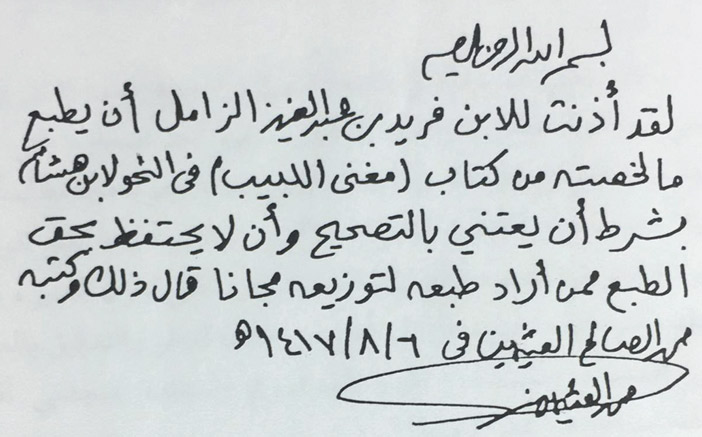 بسم الله الرحمن الرحيم
لقد أذنت للابن فريد بن عبد العزيز الزامل أن يطبع
ما لخصته من كتاب (مغنى اللبيب) فى النحو لابن هشام
بشرط أن يعتني بالتصحيح وأن لا يحتفظ بحق
الطبع ممن أراد طبعه لتوزيعه مجانا قال ذلك وكتبه
محمد الصالح العثيمين فى ٦/٨/١٤١٧ه
محمد العثيمين